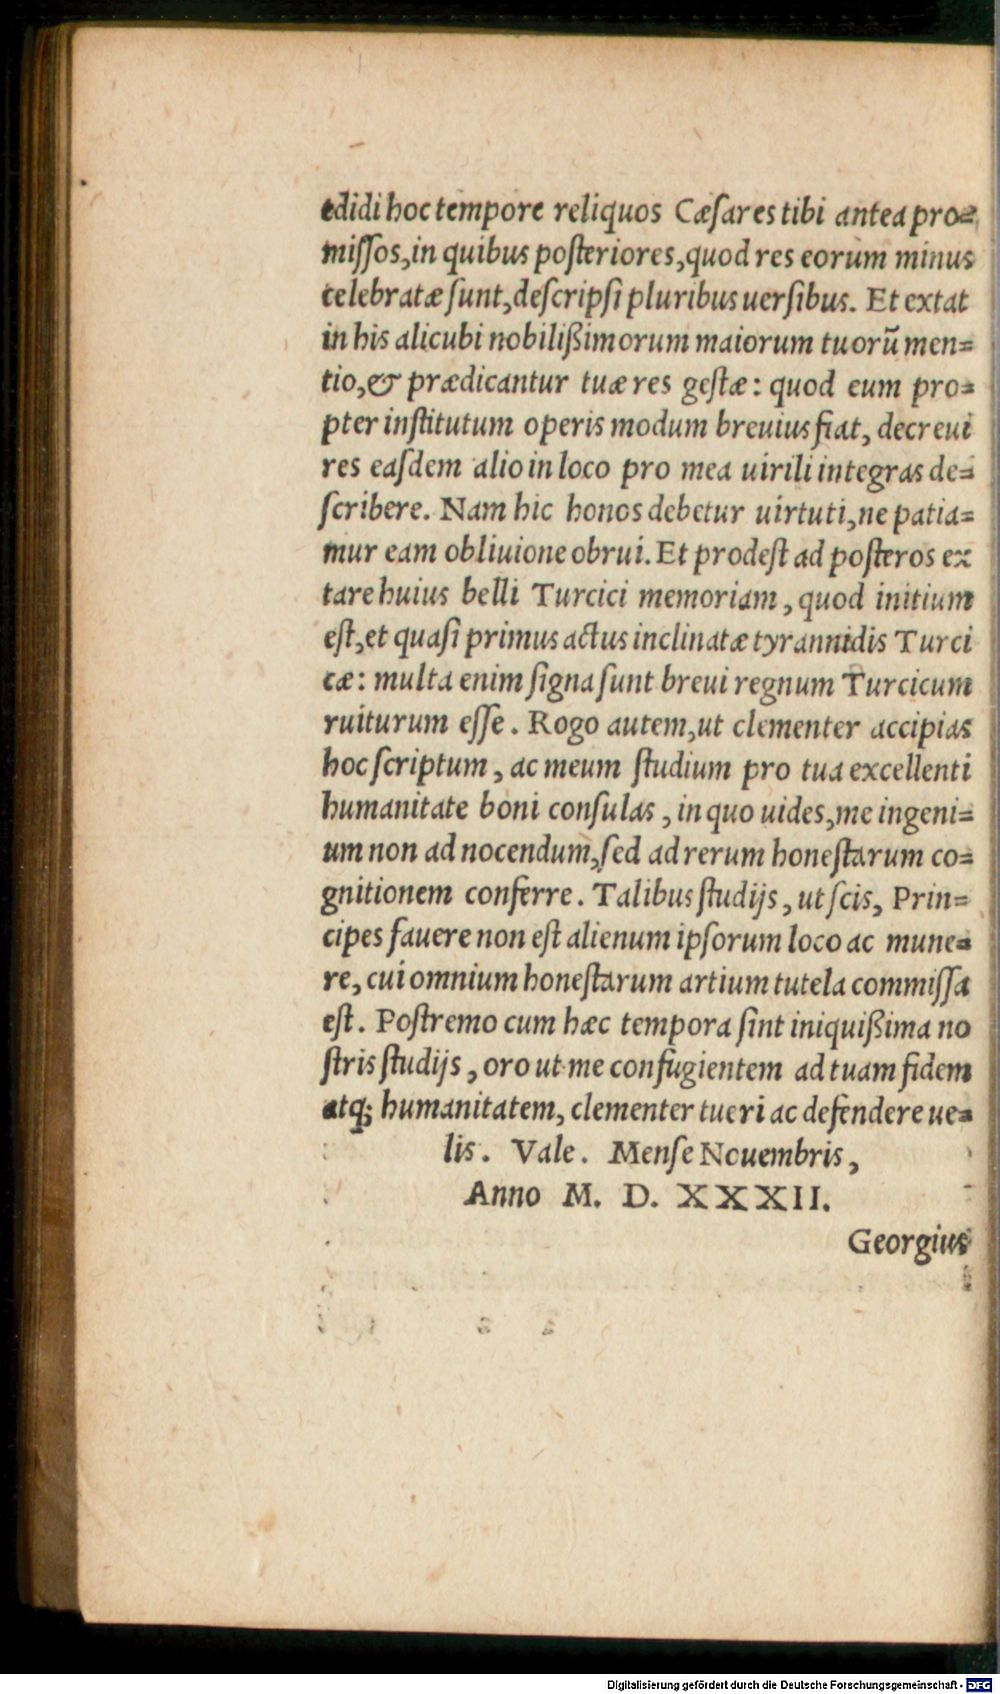 edidi hoc tempore reliquos Cæſares tibi antea pro=
miſſos, in quibus poſteriores, quod res eorum minus
celebratæ ſunt, deſcripſi pluribus uerſibus. Et extat
in his alicubi nobilißimorum maiorum tuorũ men=
tio, & prædicantur tuæ res geſtæ: quod eum pro=
pter inſtitutum operis modum breuius fiat, decreui
res eaſdem alio in loco pro mea uirili integras de=
ſcribere. Nam hic honos debetur uirtuti, ne patia=
mur eam obliuione obrui. Et prodeſt ad poſteros ex
tare huius belli Turcici memoriam, quod initium
eſt, et quaſi primus actus inclinatæ tyrannidis Turci
cæ: multa enim ſigna ſunt breui regnum Turcicum
ruiturum eſſe. Rogo autem, ut clementer accipias
hoc ſcriptum, ac meum ſtudium pro tua excellenti
humanitate boni conſulas, in quo uides, me ingeni=
um non ad nocendum, ſed ad rerum honeſtarum co=
gnitionem conferre. Talibus ſtudijs, ut ſcis, Prin=
cipes fauere non eſt alienum ipſorum loco ac mune=
re, cui omnium honeſtarum artium tutela commiſſa
eſt. Poſtremo cum hæc tempora ſint iniquißima no
ſtris ſtudijs, oro ut me confugientem ad tuam fidem
atq; humanitatem, clementer tueri ac defendere ue=
lis. Vale. Menſe Nouembris,
Anno M. D. XXXII.
Georgius
Digitalisierung gefördert durch die Deutsche Forschungsgemeinschaft - DFG